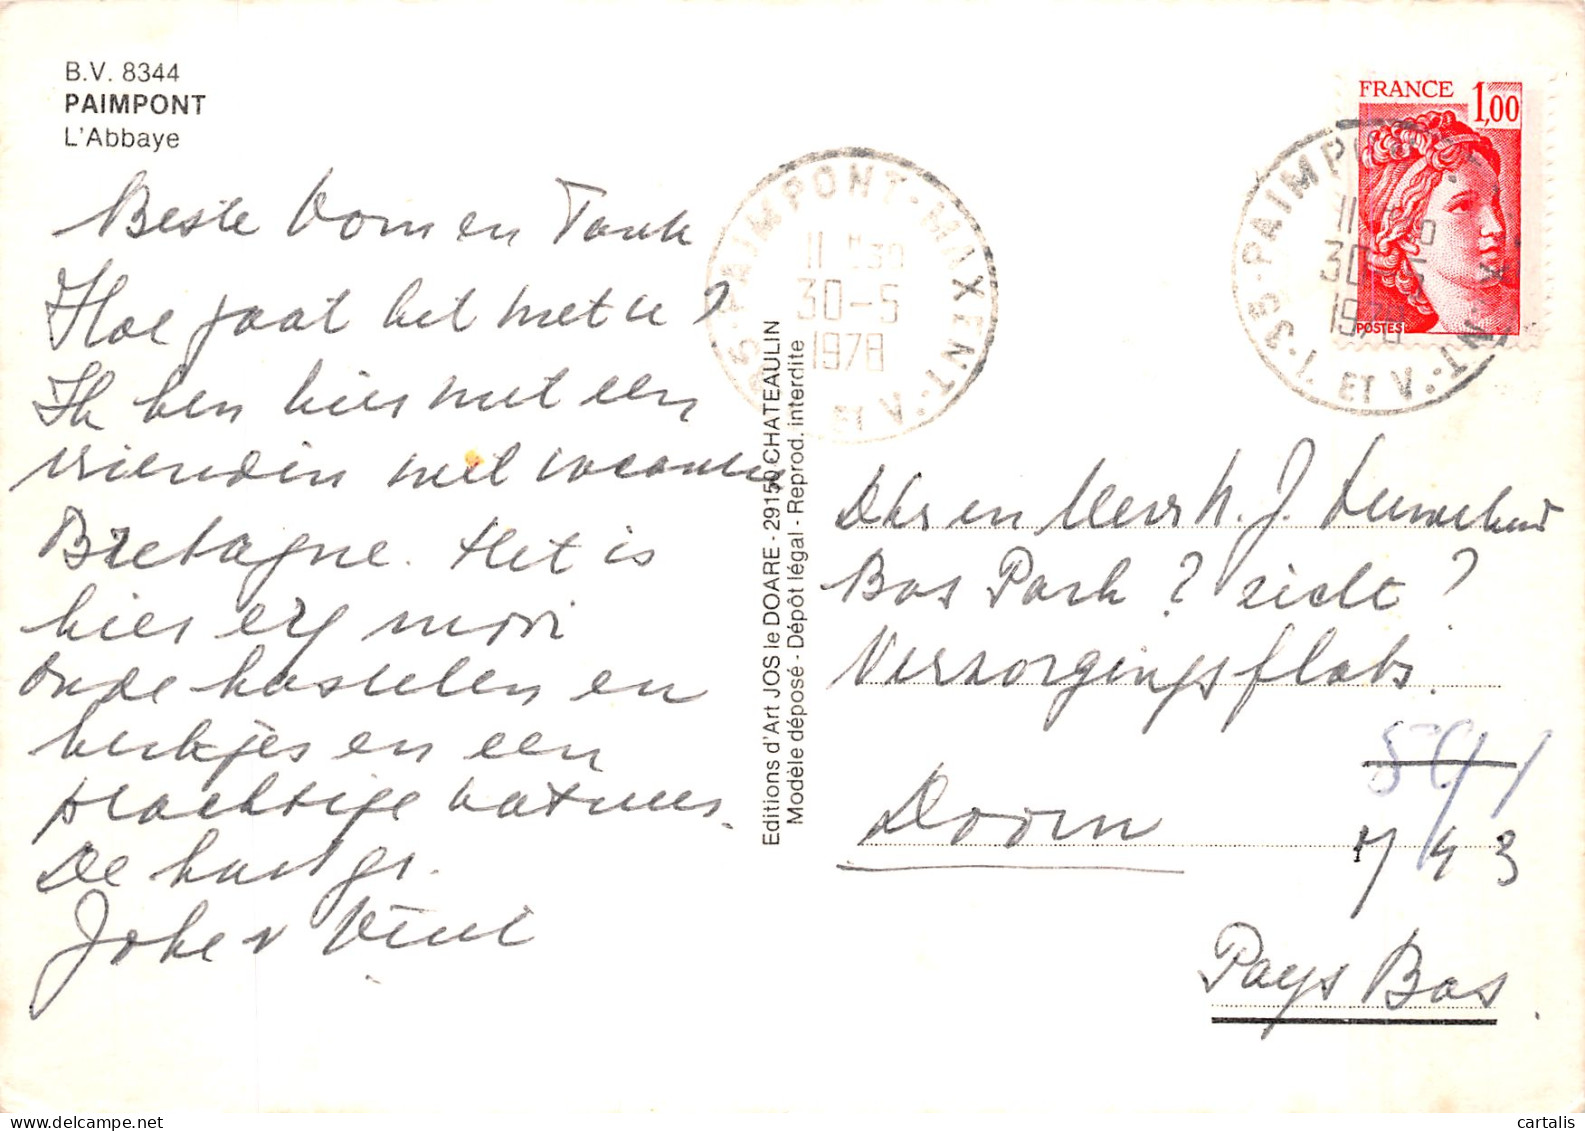 B.V. 8344
PAIMPONT
L'Abbaye
FRANCE 1,00
POSTES
PAIMPONT-MAXENT
11 H30
30-5
1978
ET V.
35-PAIMPONT
30-5
1978
I. ET V.
Beste Oom en Tante
Hoe gaat het met u?
Ik ben hier met een
vriendin met vacantie
Bretagne. Het is
hier erg mooi
oude kastelen en
kerkjes en een
prachtige natuur.
De hart gr.
Joke v
Editions d'Art JOS le DOARE - 29150 CHATEAULIN
Modèle déposé - Dépôt légal - Reprod. interdite
Dhr en Mevr H. J.
Bos Park ? zicht ?
Verzorgingsflats.
Doorn
Pays Bas.
cartalis